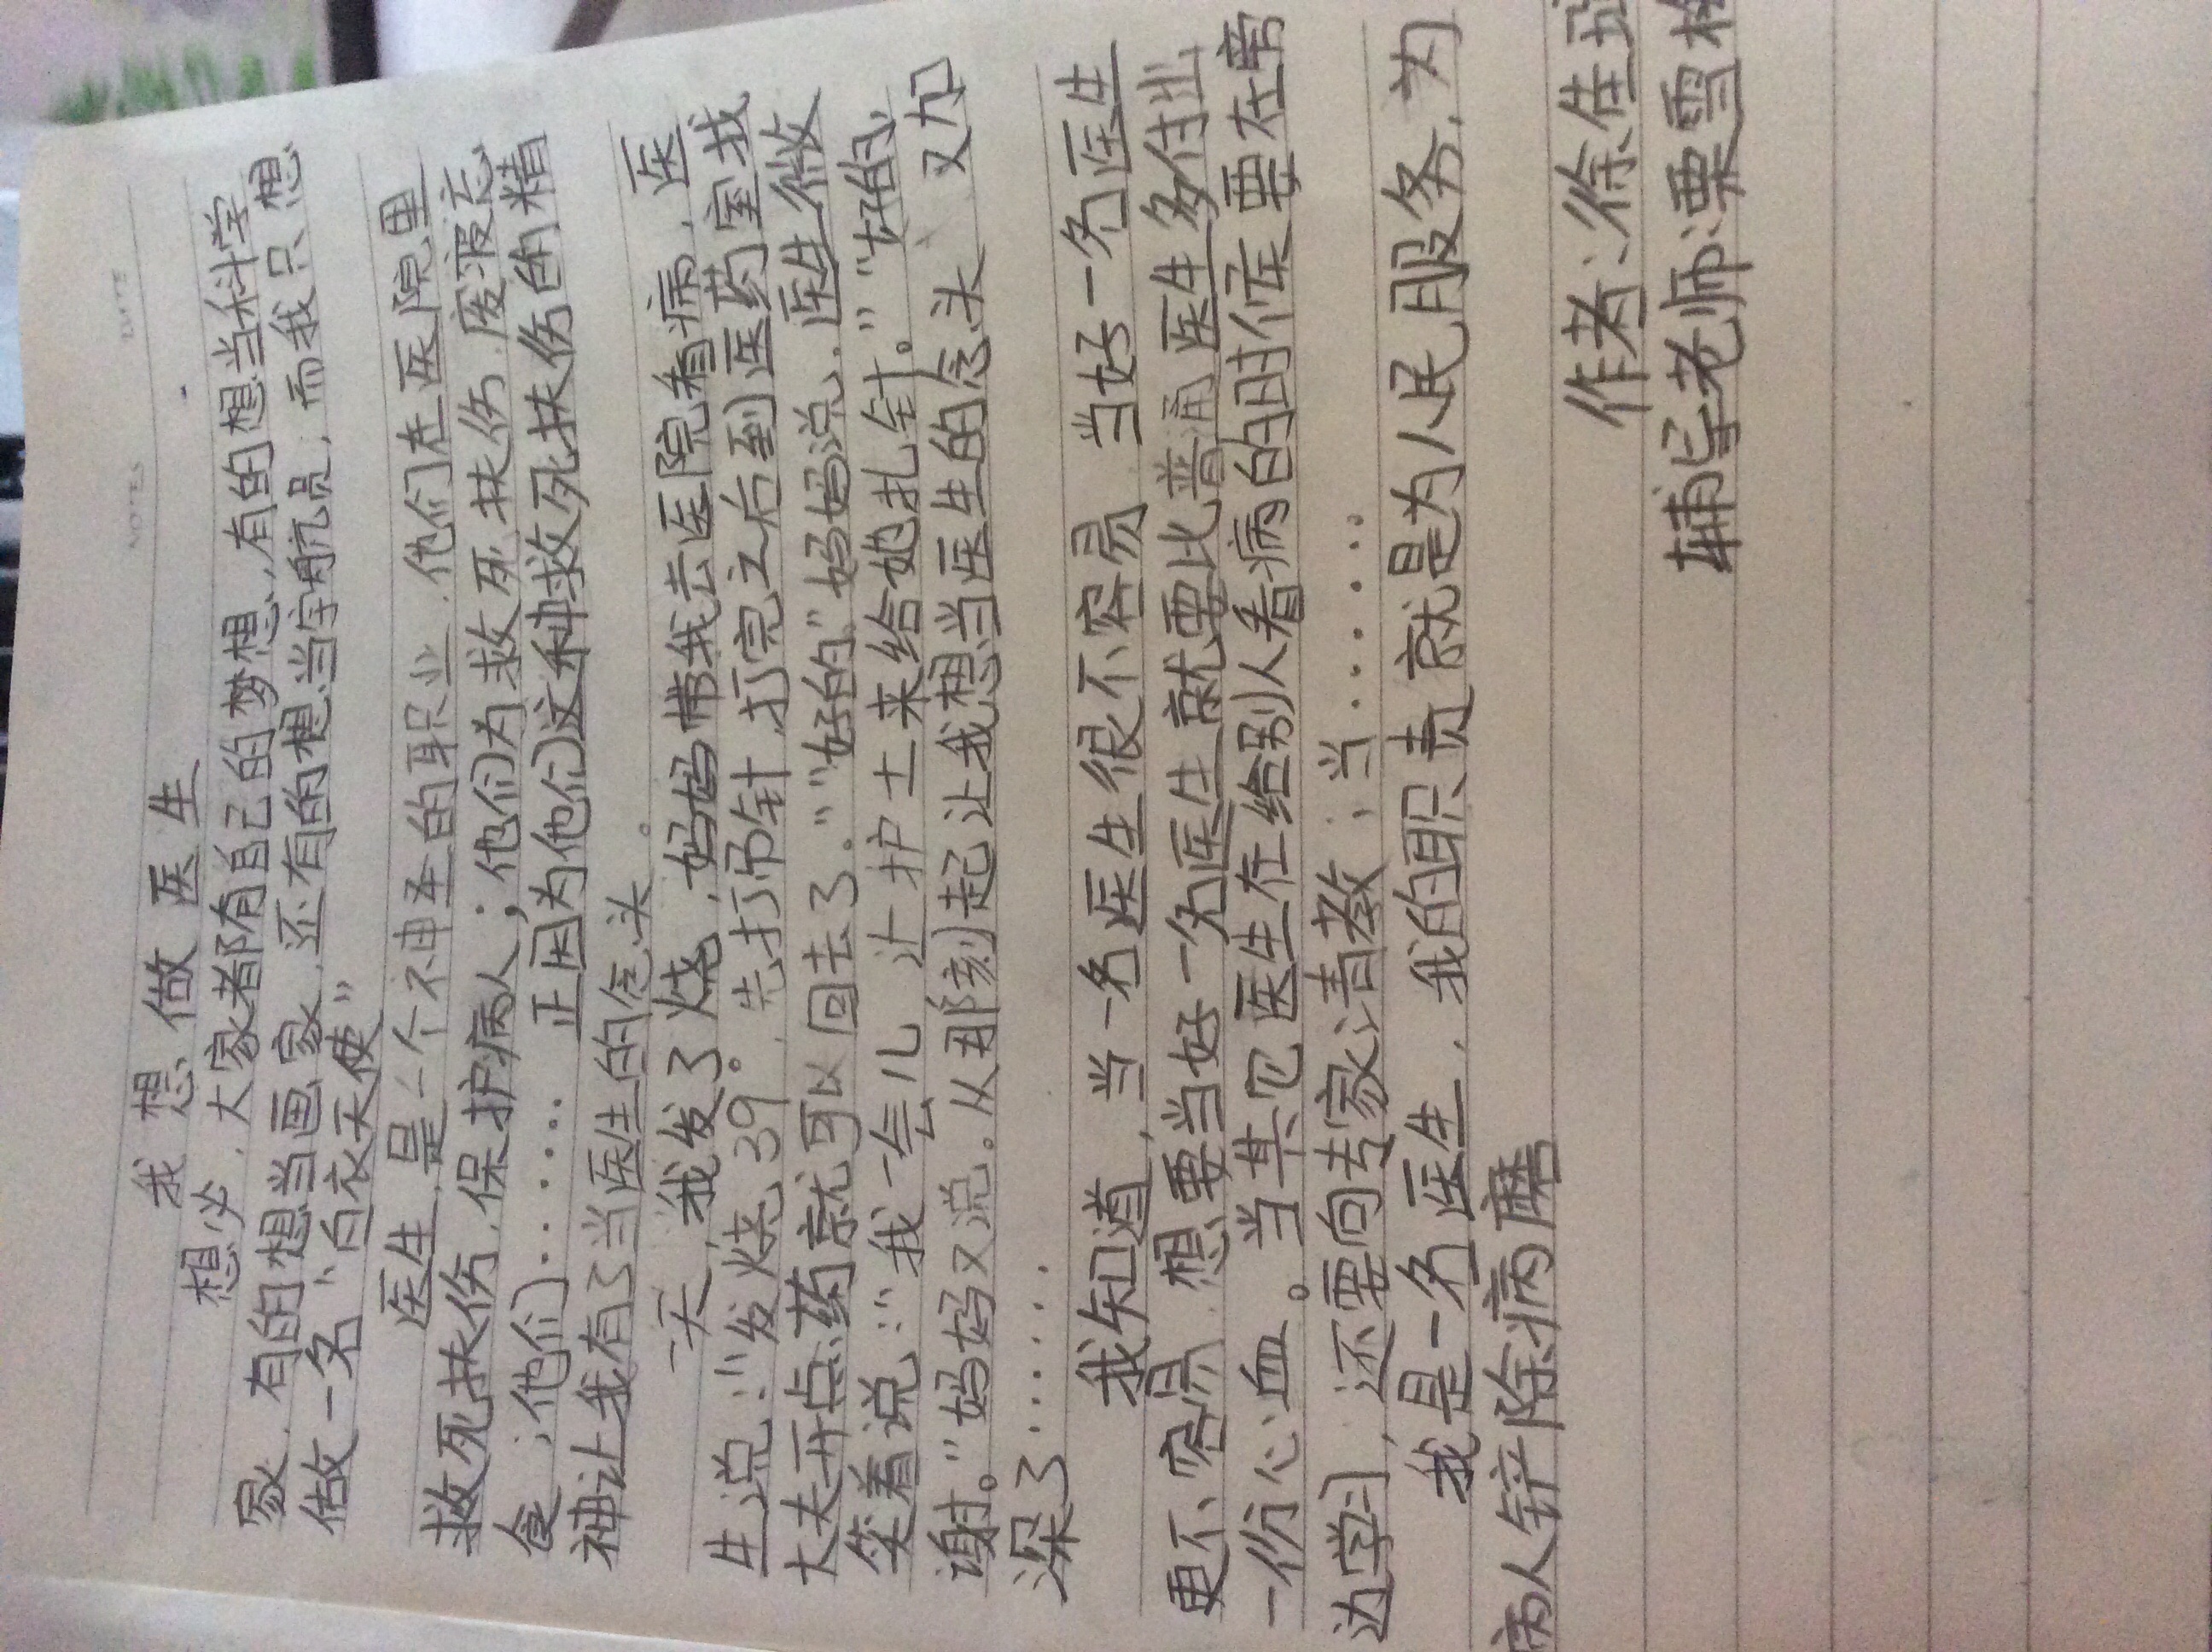 NOTES
DATE
我想做医生
想必,大家都有自己的梦想,有的想当科学
家,有的想当画家,还有的想当宇航员,而我只想
做一名“白衣天使”
医生,是一个神圣的职业,他们在医院里
救死扶伤,保护病人;他们为救死扶伤,废寝忘
食;他们……正因为他们这种救死扶伤的精
神让我有了当医生的念头。
一天,我发了烧,妈妈带我去医院看病,医
生说:“发烧39°,先打吊针,打完之后到医药室找
大夫开点药就可以回去了。”“好的”妈妈说,医生微
笑着说:“我一会儿让护士来给她扎针。”“好的,
谢谢。”妈妈又说。从那刻起让我想当医生的念头又加
深了……
我知道,当一名医生很不容易,当好一名医生
更不容易,想要当好一名医生就要比普通医生多付出
一份心血。当其它医生在给别人看病的时候要在旁
边学习,还要向专家请教;当……
我是一名医生,我的职责就是为人民服务,为
病人铲除病磨
作者:徐佳
辅导老师:栗雪梅